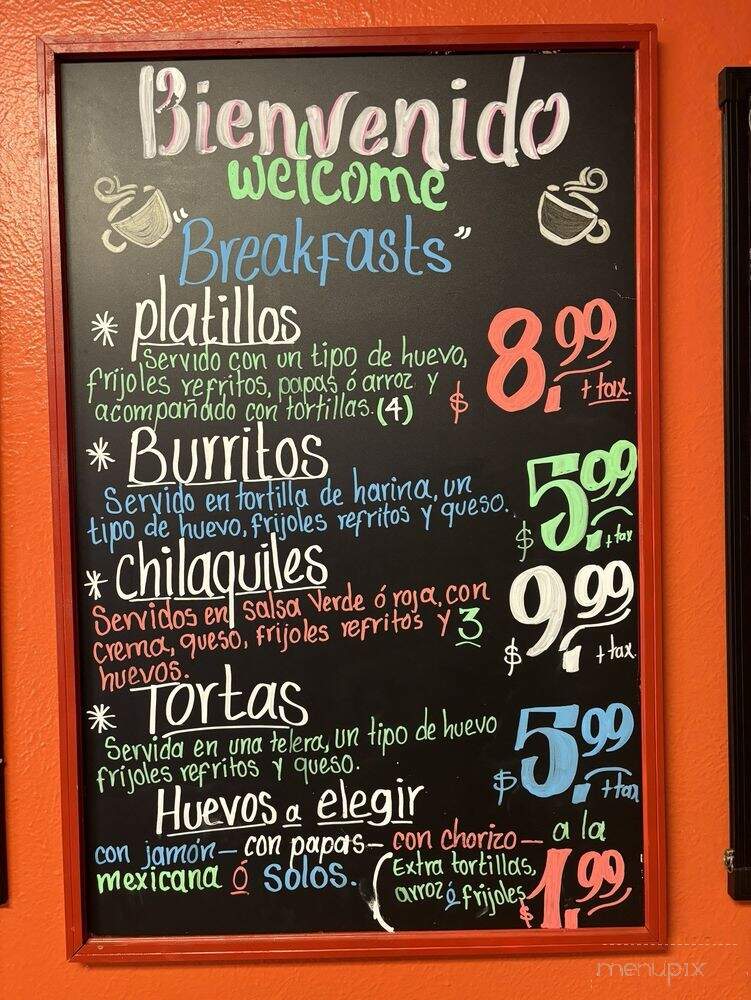 Bienvenido
welcome
"Breakfasts"
* platillos
Servido con un tipo de huevo,
frijoles refritos, papas ó arroz y
acompañado con tortillas. (4)
$ 8.99 + tax.
* Burritos
Servido en tortilla de harina, un
tipo de huevo, frijoles refritos y queso.
$ 5.99 + tax
* Chilaquiles
Servidos en salsa Verde ó roja, con
crema, queso, frijoles refritos y 3
huevos.
$ 9.99 + tax
* Tortas
Servida en una telera, un tipo de huevo
frijoles refritos y queso.
$ 5.99 + tax
Huevos a elegir
con jamón – con papas – con chorizo – a la
mexicana ó solos.
(Extra tortillas,
arroz ó frijoles
$ 1.99
menupix